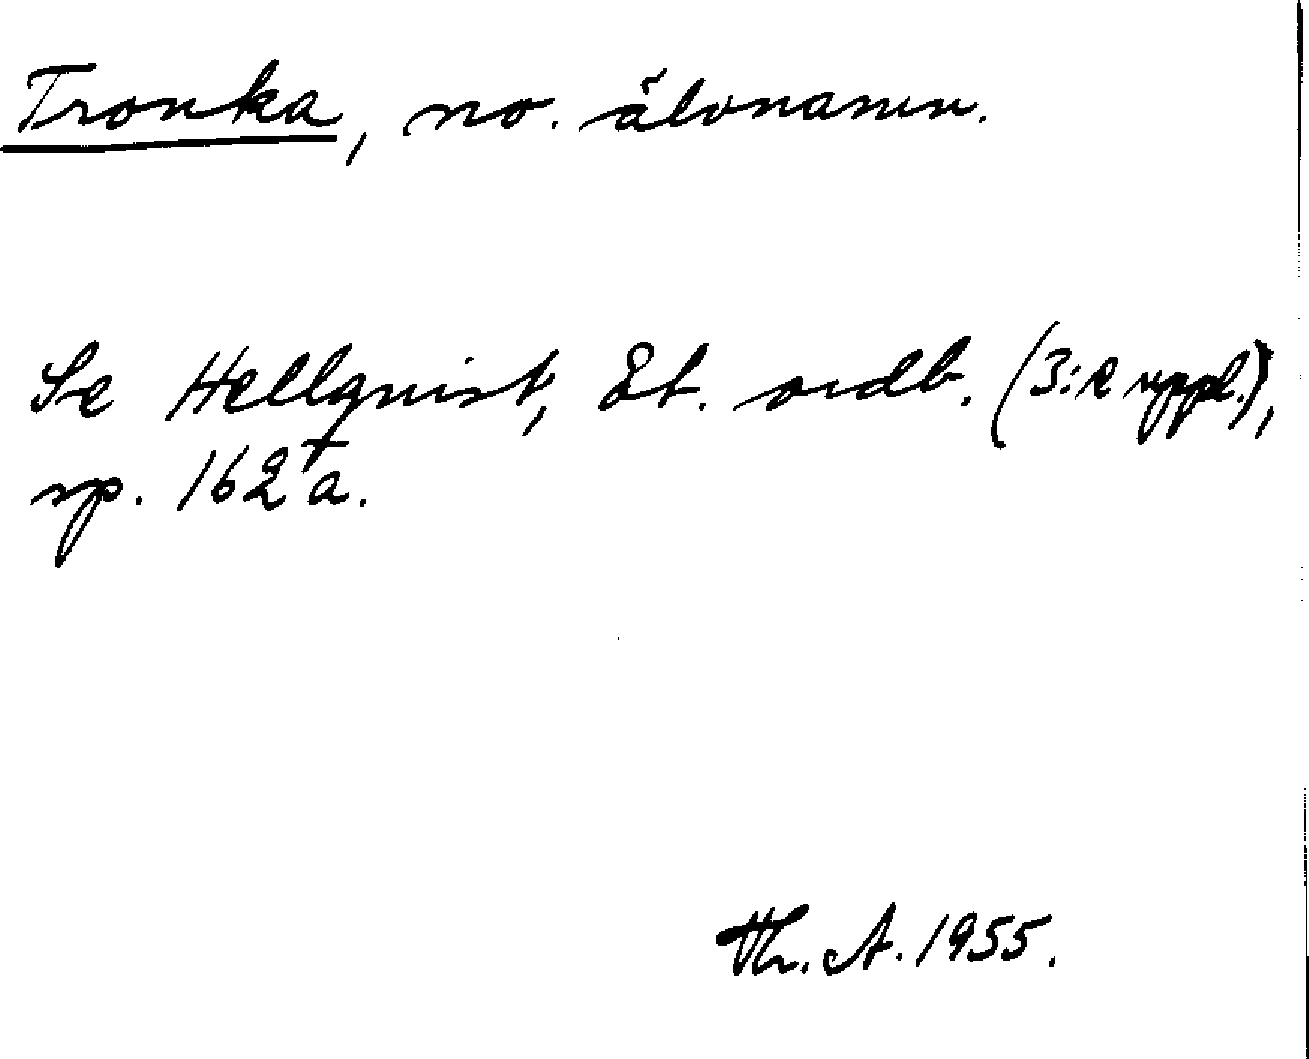 Tronka, no. älvnamn.
Se Hellquist, Et. ordb. (3:e uppl.),
sp. 162 a.
Th. A. 1955.